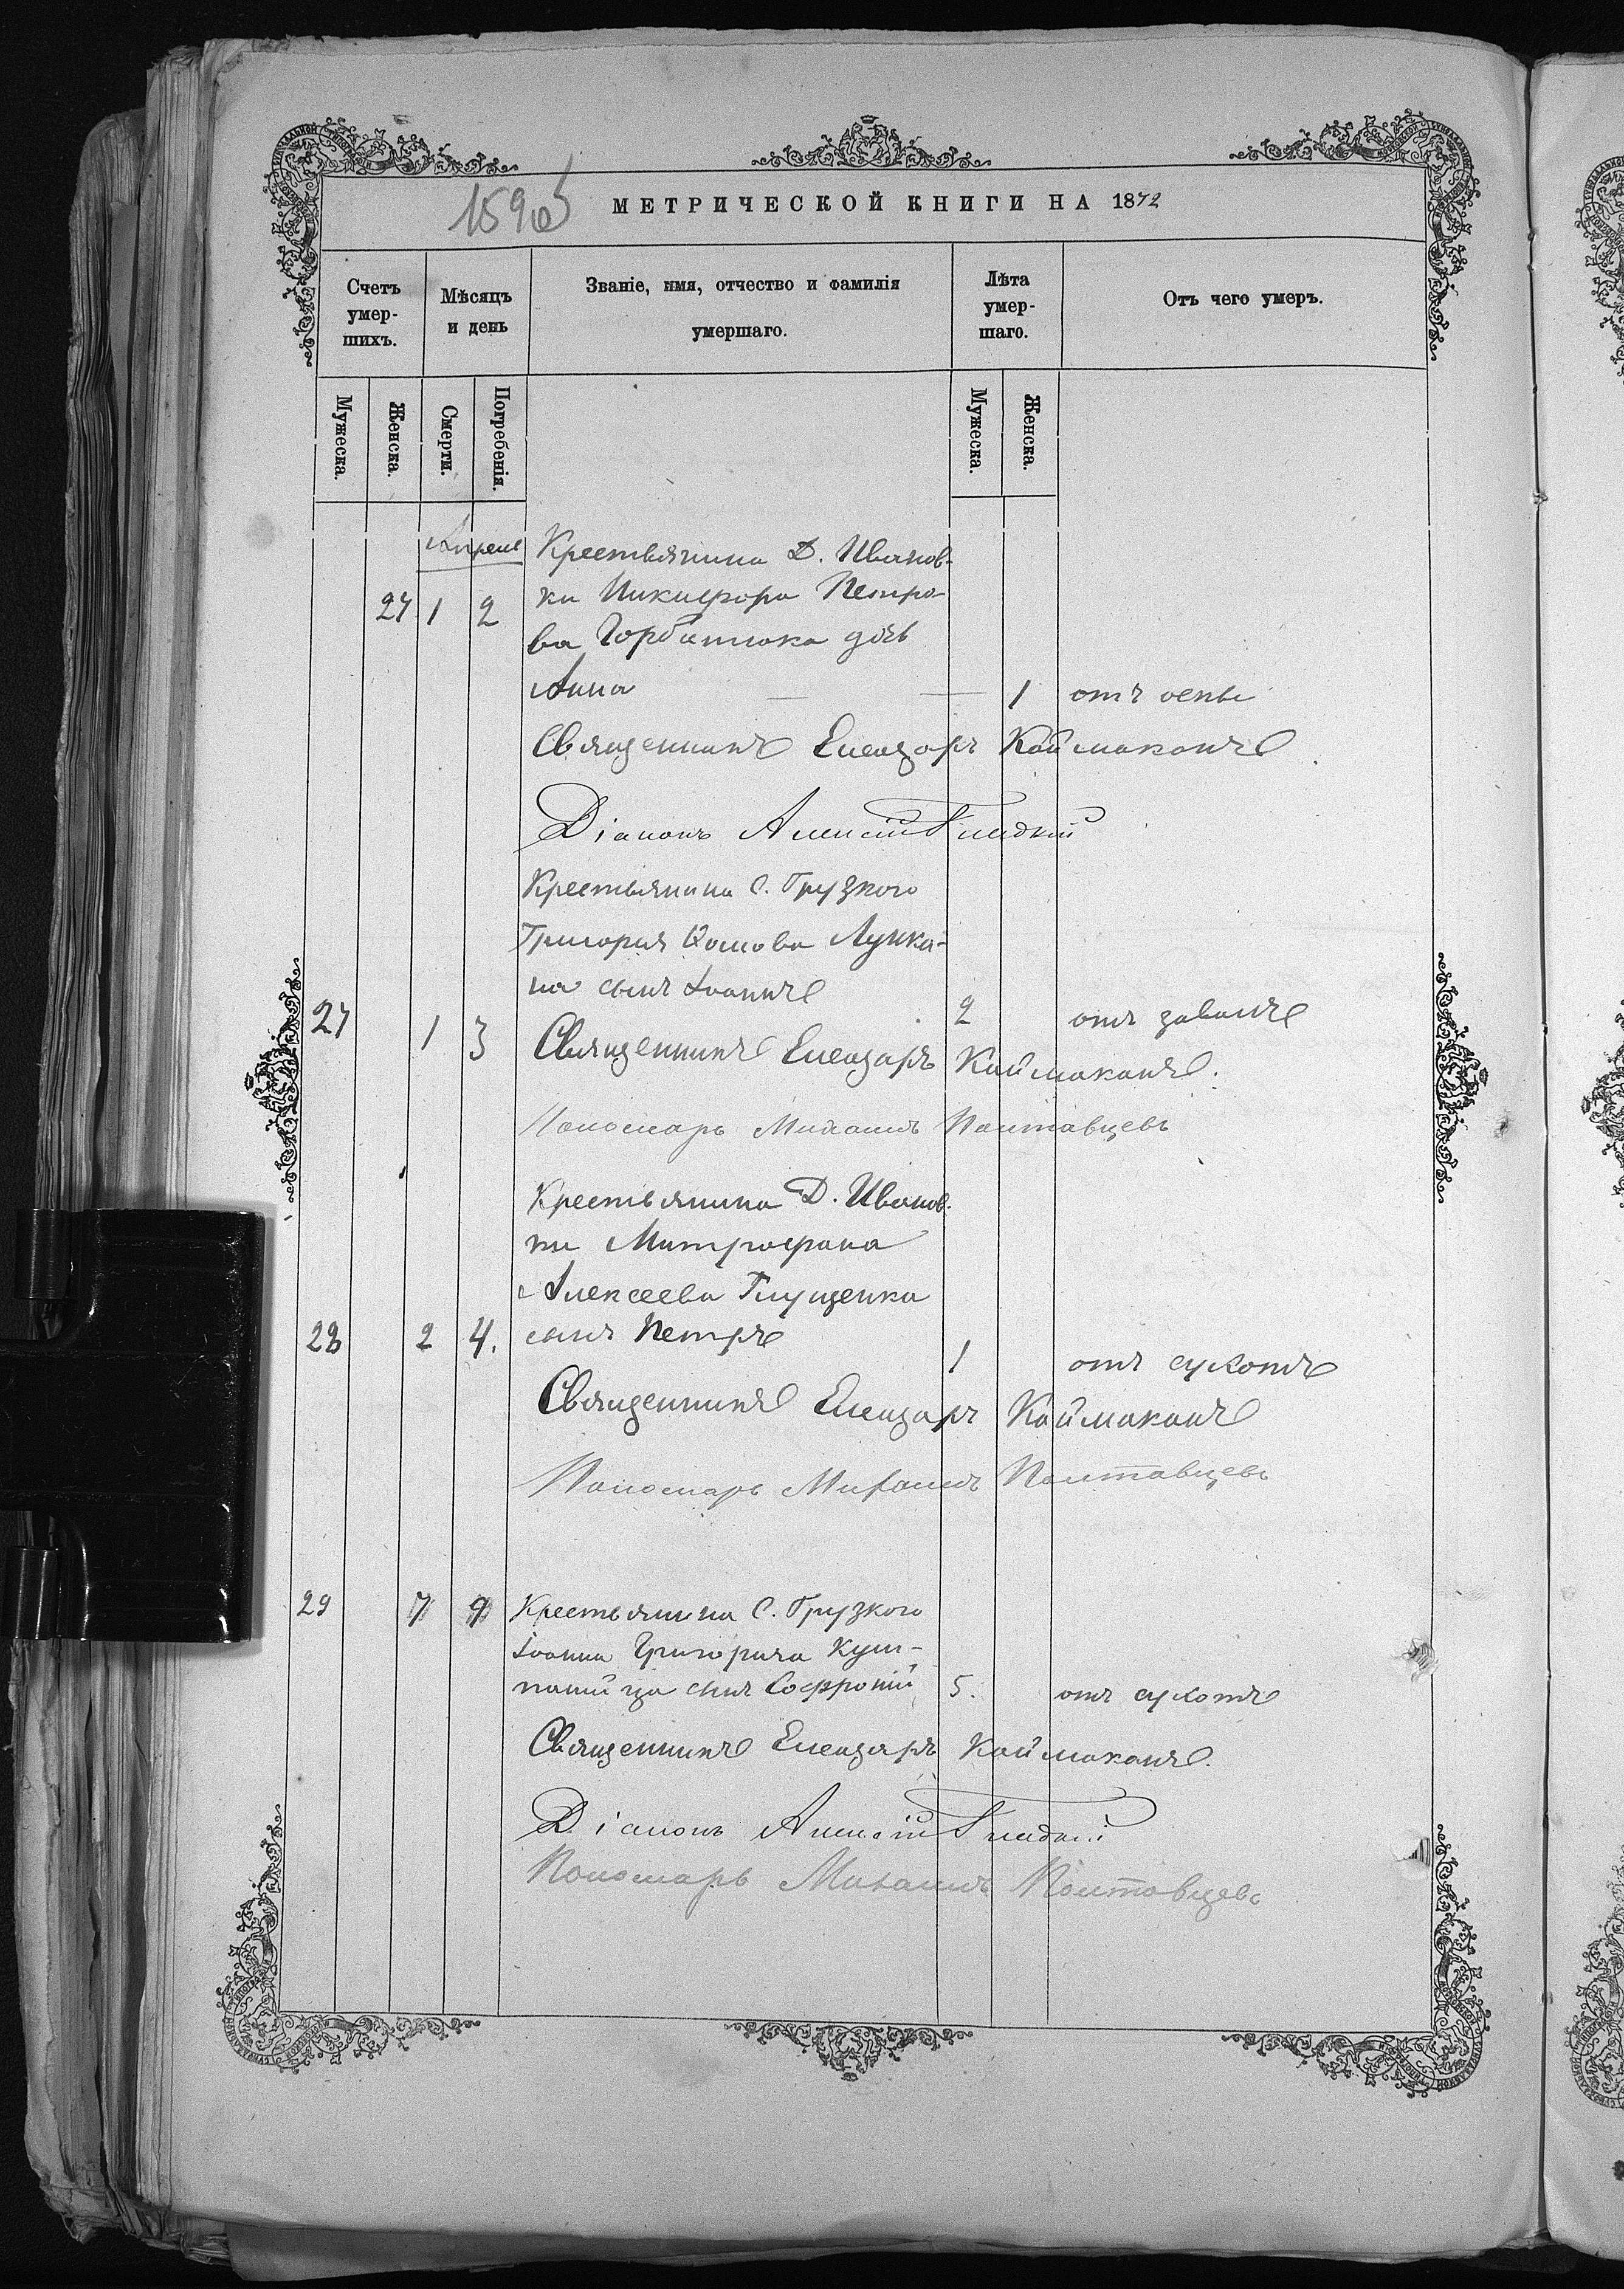 159 об
МЕТРИЧЕСКОЙ КНИГИ НА 1872
Счетъ умер-шихъ.
Мѣсяцъ и день
Званіе, имя, отчество и фамилія умершаго.
Лѣта умер-шаго.
Отъ чего умеръ.
Мужеска.
Женска.
Смерти.
Погребенія.
Мужеска.
Женска.
Апрель
Крестьянина Д. Иванов-
27 1 2 ки Никифора Петро-
ва Горбатюка дочь
Анна — — 1 отъ оспы
Священникъ Елеазаръ Каймаканъ
Діаконъ Алексій Гладкій
Крестьянина С. Грузкого
Григорія Фомова Лупка-
на сынъ Іоаннъ
27 1 3 2 отъ завалъ
Священникъ Елеазаръ Каймаканъ.
Пономарь Михаилъ Полтавцевъ
Крестьянина Д. Иванов-
ки Митрофана
Алексеева Глущенка
28 2 4. сынъ Петръ 1 отъ сухотъ
Священникъ Елеазаръ Каймаканъ
Пономарь Михаилъ Полтавцевъ
29 7 9 Крестьянина С. Грузкого
Іоанна Григорича Куш-
сынъ Софроній 5. отъ сухотъ
Священникъ Елеазаръ Каймаканъ.
Діаконъ Алексій Гладкій
Пономарь Михаилъ Полтавцевъ